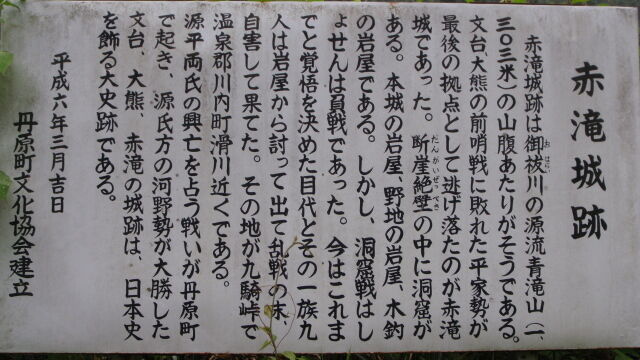 赤滝城跡
赤滝城跡は御祓川の源流青滝山(一、
三〇三米)の山腹あたりがそうである。
文台、大熊の前哨戦に敗れた平家勢が
最後の拠点として逃げ落たのが赤滝
城であった。断崖絶壁の中に洞窟が
ある。本城の岩屋、野地の岩屋、木釣
の岩屋である。しかし、洞窟戦はし
ょせんは負戦であった。今はこれま
でと覚悟を決めた目代とその一族九
人は岩屋から討って出て乱戦の末、
自害して果てた。その地が九騎峠で
温泉郡川内町滑川近くである。
源平両氏の興亡を占う戦いが丹原町
で起き、源氏方の河野勢が大勝した
文台、大熊、赤滝の城跡は、日本史
を飾る大史跡である。
平成六年三月吉日
丹原町文化協会建立